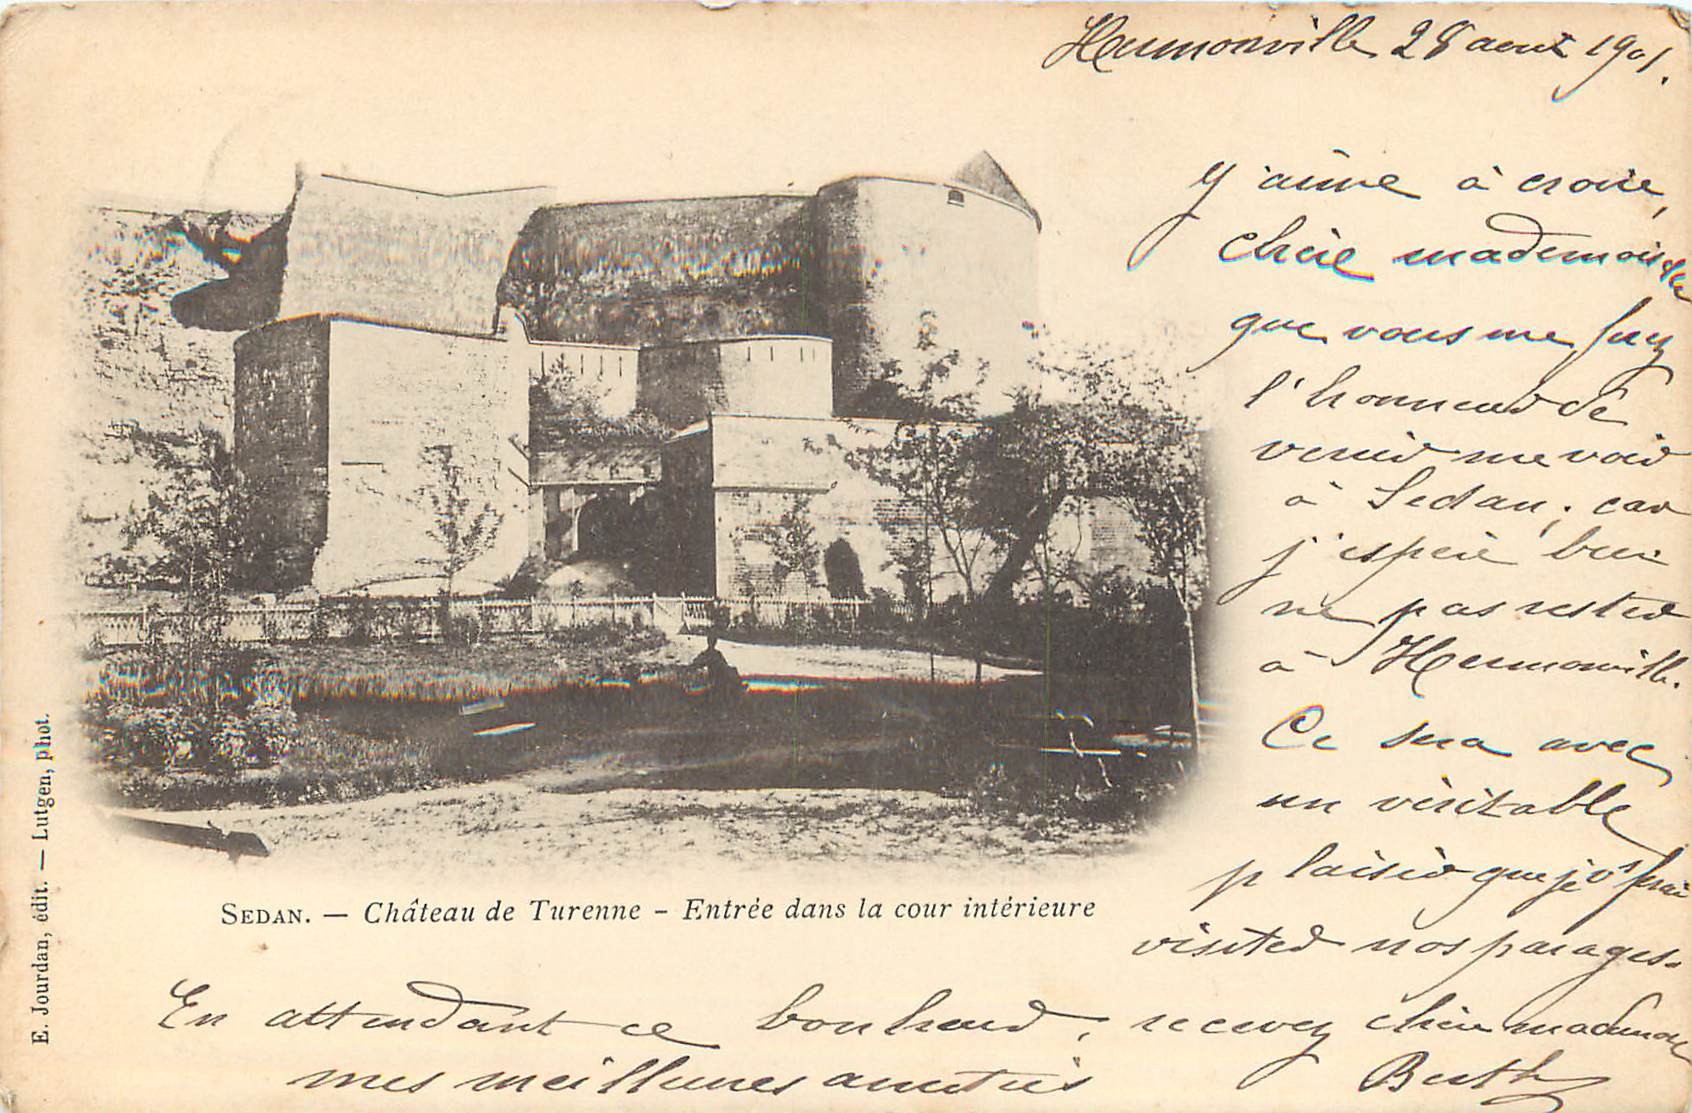 Hermonville 28 aout 1901.
J'aime à croire,
chère mademoiselle
que vous me fery
l'honneur de
venir me voir
à Sedan, car
j'espère bien
ne pas rester
à Hermonville.
Ce sera avec
un véritable
plaisir que je v's ferai
visiter nos parages.
En attendant ce bonheur, recevez chère mademoi
mes meilleures amitiés
Berthe
SEDAN. — Château de Turenne - Entrée dans la cour intérieure
E. Jourdan, édit. — Lutgen, phot.